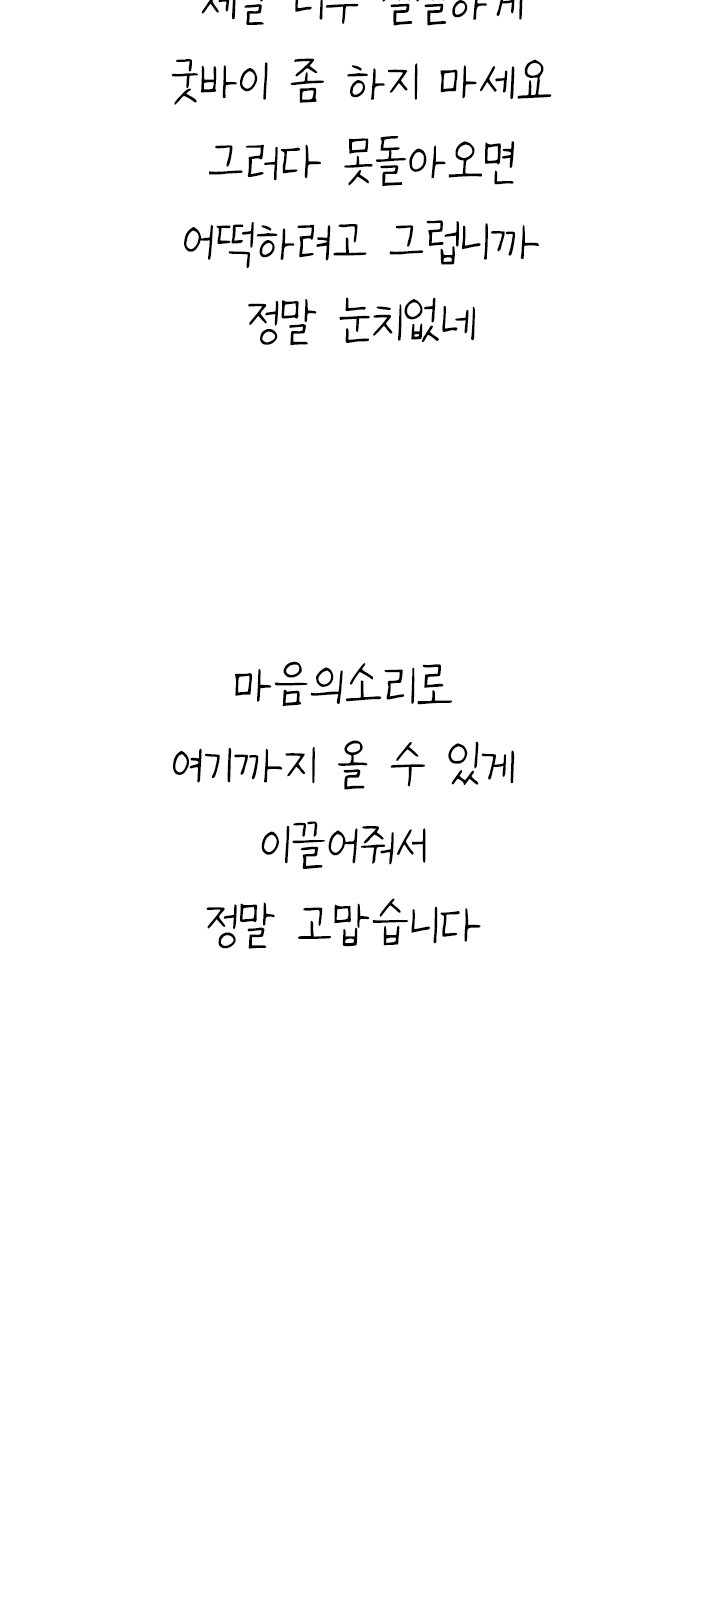 굿바이 좀 하지 마세요
그러다 못돌아오면
어떡하려고 그럽니까
정말 눈치없네
마음의소리로
여기까지 올 수 있게
이끌어줘서
정말 고맙습니다